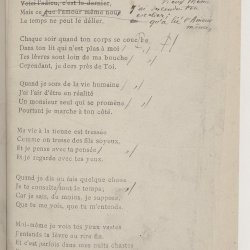 Voici l'adieu, c'est le dernier,
Mais ce que l'amour même noue
Le temps ne peut le délier.
Chaque soir quand ton corps se couche
Dans ton lit qui n'est plus à moi
Tes lèvres sont loin de ma bouche
Cependant, je dors près de Toi.
Quand je sors de la vie humaine
J'ai l'air d'être en réalité
Un monsieur seul qui se promène
Pourtant je marche à ton côté.
Ma vie à la tienne est tressée
Comme on tresse des fils soyeux,
Et je pense avec ta pensée
Et je regarde avec tes yeux.
Quand je dis ou fais quelque chose
Je te consulte, tout le temps;
Car je sais, du moins, je suppose,
Que tu me vois, que tu m'entends.
Moi-même je vois tes yeux vastes
J'entends ta lèvre au rire fin.
Et c'est parfois dans mes nuits chastes